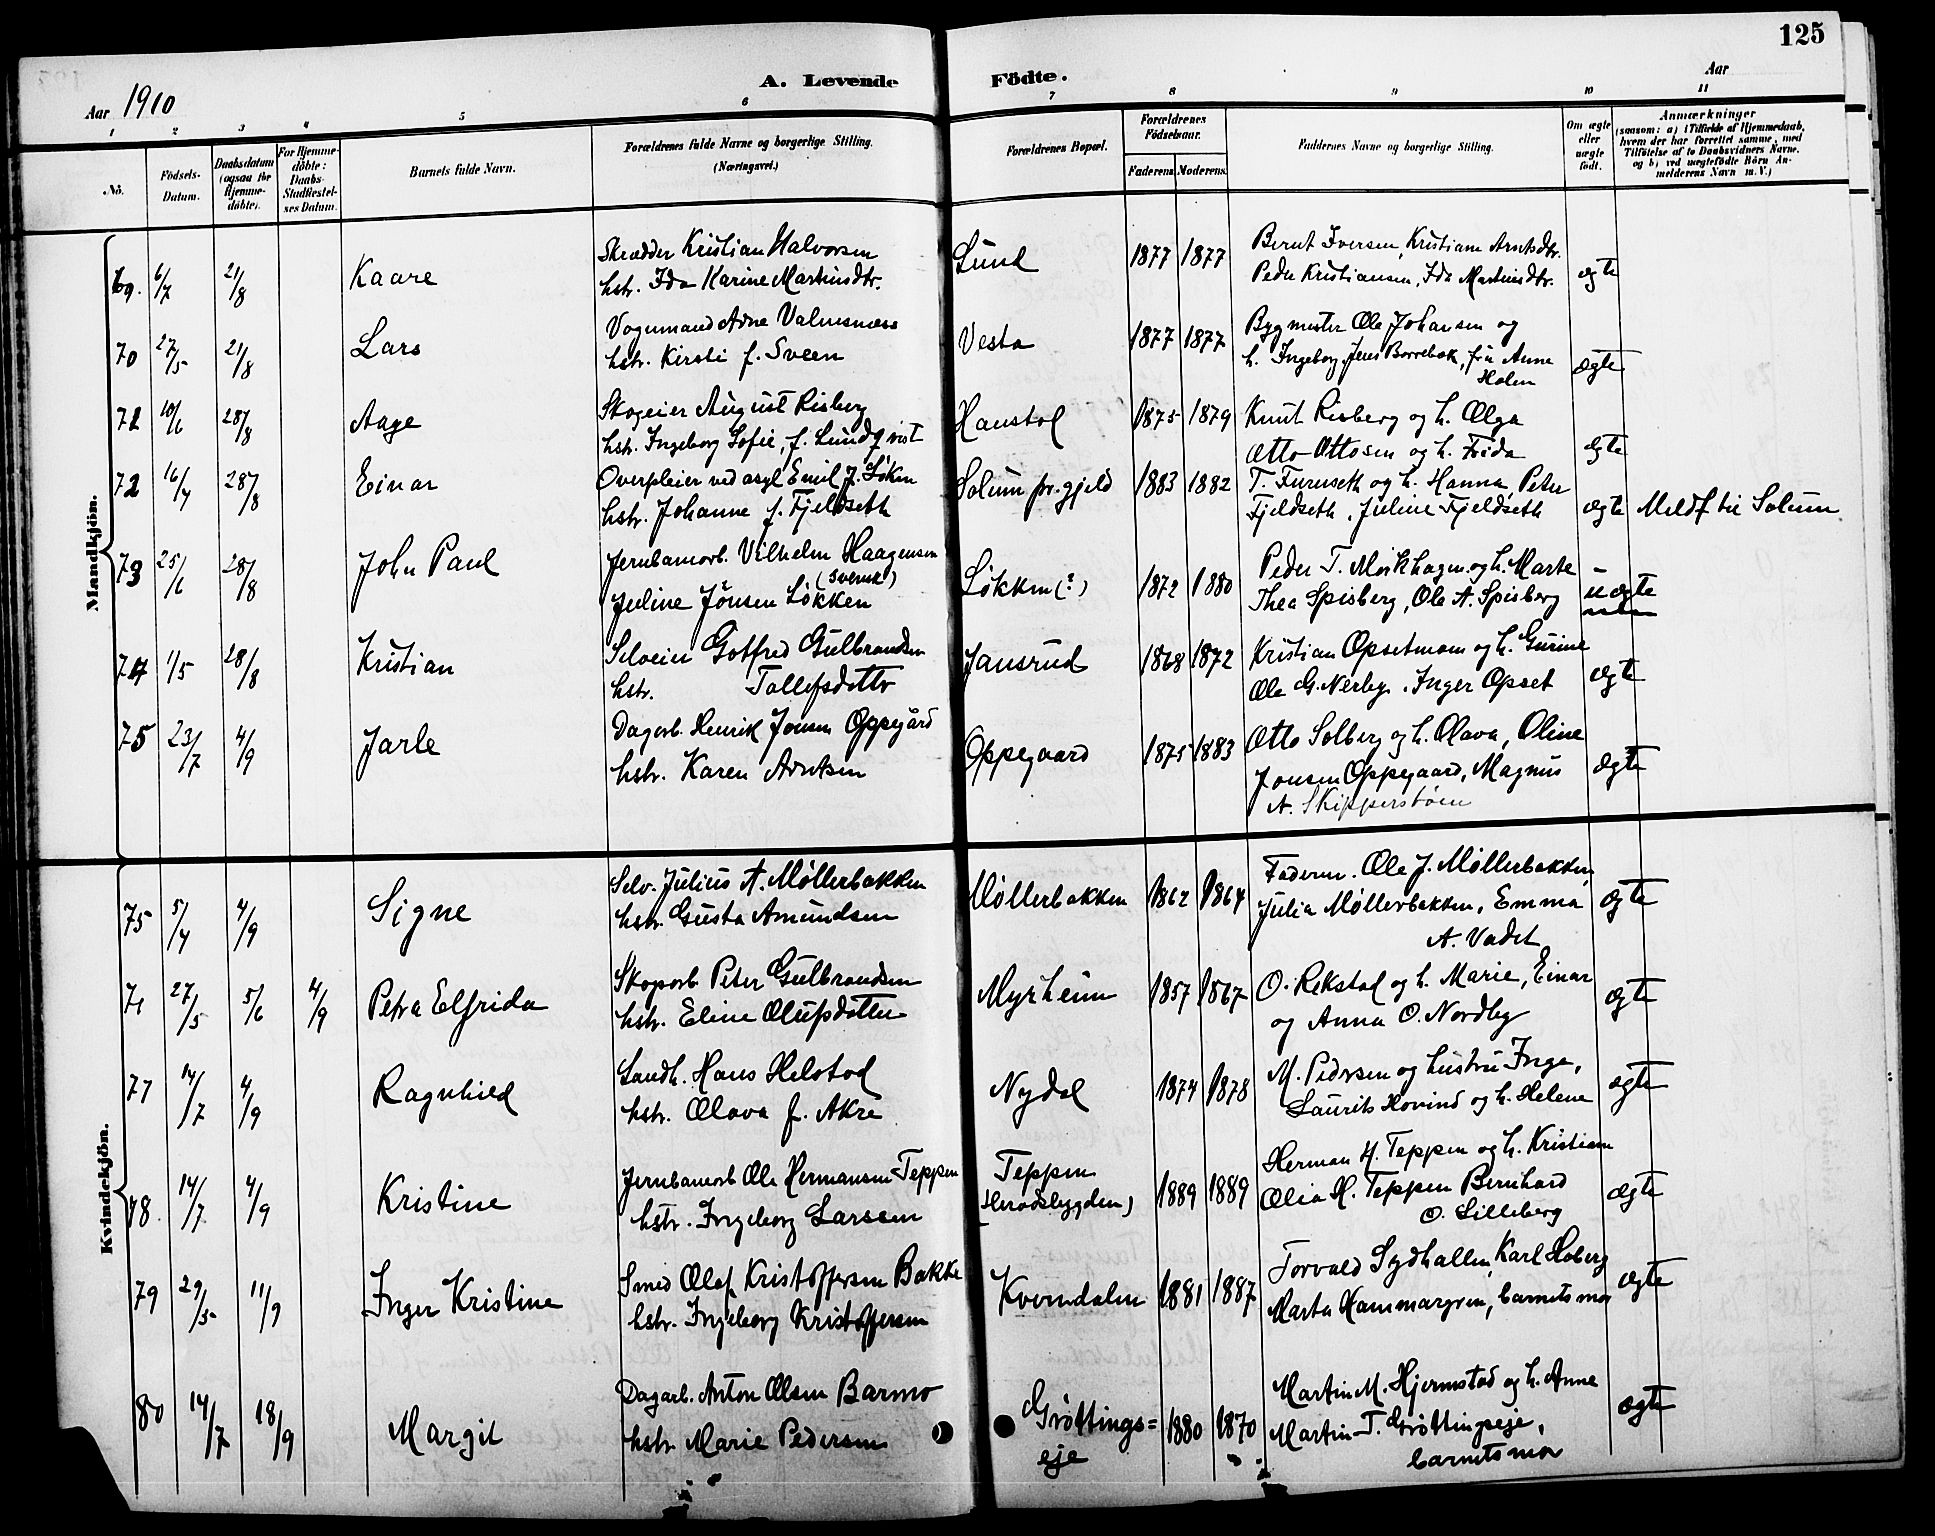 125
A. Levende Födte.
Aar 1910
Aar
1 2 3 4 5 6 7 8 9 10 11
No.
Födsels-Datum.
Daabsdatum (ogsaa for Hjemmedöbte).
For Hjemmedöbte: Daabs-Stadfæstelses Datum.
Barnets fulde Navn.
Forældrenes fulde Navne og borgerlige Stilling. (Næringsvei.)
Forældrenes Bopæl.
Forældrenes Födselsaar.
Faderens. Moderens.
Faddernes Navne og borgerlige Stilling.
Om ægte eller uægte födt.
Anmærkninger (saasom: a) i Tilfælde af Hjemmedaab, hvem der har forrettet samme, med Tilföielse af to Daabsvidners Navne, og b) ved uægtefödte Börn Anmelderens Navn m. V.)
Mandkjön.
69. 6/7 21/8 Kaare Skrædder Kristian Halvorsen Lund 1877 1877 Bernt Iversen, Kristiane Arntsdtr. ægte
hstr. Ida Karine Martinsdtr. Peder Kristiansen, Ida Martinsdtr.
70 27/5 21/8 Lars Vognmand Arne Valmsnæss Vesta 1877 1877 Bygmester Ole Johansen og ægte
hstr. Kirsti f. Sveen h. Ingeborg, Jens Borrebæk, fru Anna
Holen
71 10/6 28/8 Aage Skogeier August Risberg Hanstad 1875 1879 Knut Risberg og h. Olga ægte
hstr. Ingeborg Sofie, f. Lundqvist Otto Ottosen og h. Frida
72 16/4 28/8 Einar Overpleier ved asyl Emil J. Løken Solum pr.gjeld 1883 1882 T. Furuseth og h. Hanna, Peter ægte Meldt til Solum
hstr. Johanne f. Fjeldseth Fjeldseth, Juline Fjeldseth
73 25/6 28/8 John Paul Jernbanearb. Vilhelm Haagensen Løkken (?) 1872 1880 Peder T. Mørkhagen og h. Marte uægte
(svensk)
Juline Jónsen Løkken Thea Spisberg, Ole A. Spisberg
74 1/5 28/8 Kristian Selveier Gotfred Gulbrandsen Jansrud 1868 1872 Kristian Opsetmoen og h. Gurine ægte
hstr. Tollefsdatter Ole G. Nerby, Inger Opset
75 23/7 4/9 Jarle Dagarb. Henrik Jonsen Oppegård Oppegaard 1875 1883 Otto Solberg og h. Olava, Oline ægte
hstr. Karen Arntsen Jonsen Oppegaard, Magnus
A. Skipperstøen
Kvindekjön.
75 5/4 4/9 Signe Selv. Julius A. Møllerbakken Møllerbakken 1862 1864 Faderen. Ole J. Møllerbakken, ægte
hstr. Gusta Amundsen Julia Møllerbakken, Emma
A. Vadet
71 27/5 5/6 4/9 Petra Elfrida Skogarb. Peter Gulbrandsen Myrheim 1857 1867 O. Rekstad og h. Marie, Einar ægte
hstr. Eline Olufsdatter og Anna O. Nordby
77 14/7 4/9 Ragnhild Landh. Hans Helstad Nydal 1874 1878 M. Pedersen og hustru Inga, ægte
hstr. Olava f. Akre Laurits Hovind og h. Helene
78 14/7 4/9 Kristine Jernbanearb Ole Hermansen Teppen Teppen 1889 1889 Herman H. Teppen og h. Kristiane ægte
hstr. Ingeborg Larsen (Heradsbygden) Olia H. Teppen Bernhard
O. Lilleberg
79 29/5 11/9 Inger Kristine Smed Olaf Kristoffersen Bakke Kverndalen 1881 1887 Torvald Sydhallen, Karl Hoberg ægte
hstr. Ingeborg Kristoffersen Marta Hammargren, barnets mor
80 14/7 18/9 Margit Dagarb. Anton Olsen Barmo Grøttings= 1880 1870 Martin M. Hjermstad og h. Anne ægte
hstr. Marie Pedersen eje Martin T. Grøttingseje,
barnets mor